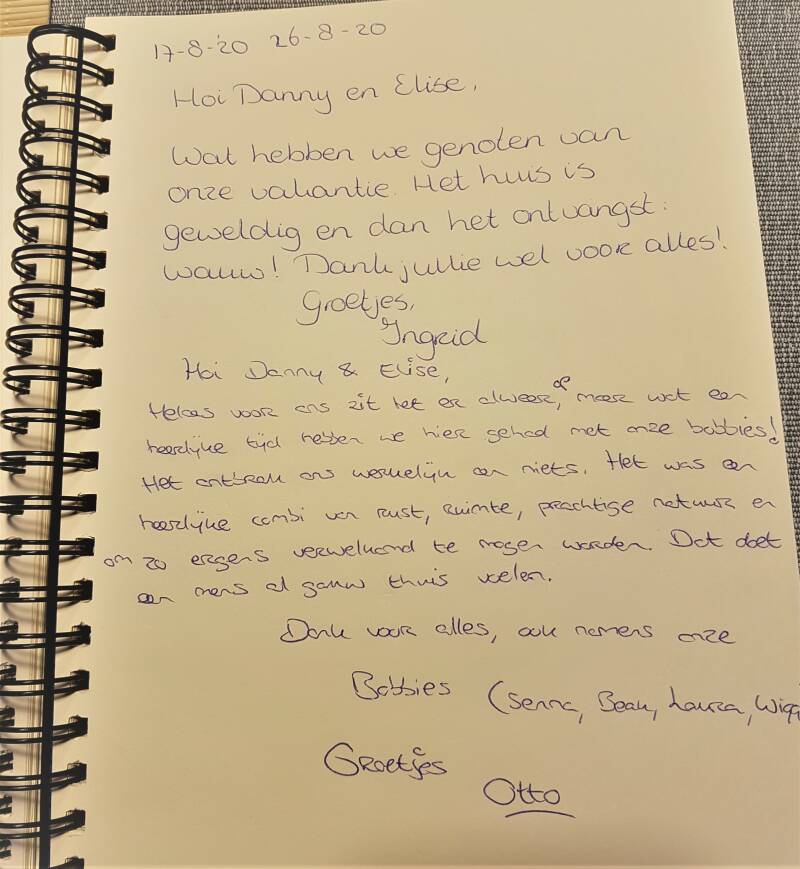 17-8-'20 26-8-20
Hoi Danny en Elise,
Wat hebben we genoten van
onze vakantie. Het huis is
geweldig en dan het ontvangst:
wauw! Dank jullie wel voor alles!
Groetjes,
Ingrid
Hoi Danny & Elise,
Helaas voor ons zit het er alweer, op maar wat een
heerlijke tijd hebben we hier gehad met onze bobbies!
Het ontbrak ons werkelijk aan niets. Het was een
heerlijke combi van rust, ruimte, prachtige natuur en
om zo ergens verwelkomd te mogen worden. Dat doet
een mens al gauw thuis voelen.
Dank voor alles, ook namens onze
Bobbies (Senna, Beau, Laura,
Groetjes
Otto